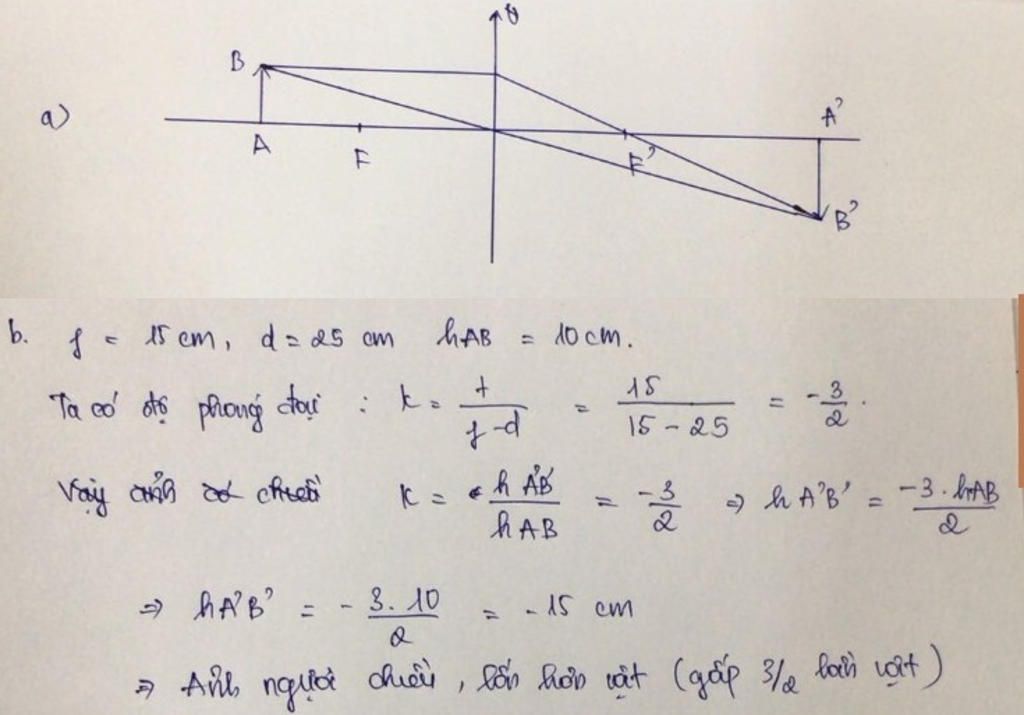 a)
B
A
F
F'
A'
B'
b. f = 15 cm, d = 25 cm hAB = 10 cm.
Ta có độ phóng đại : k = f / (f - d) = 15 / (15 - 25) = -3/2.
Vậy k = hA'B' / hAB = -3/2 => hA'B' = -3 . hAB / 2
=> hA'B' = - 3 . 10 / 2 = - 15 cm
=> Ảnh ngược chiều, lớn hơn vật (gấp 3/2 lần vật)